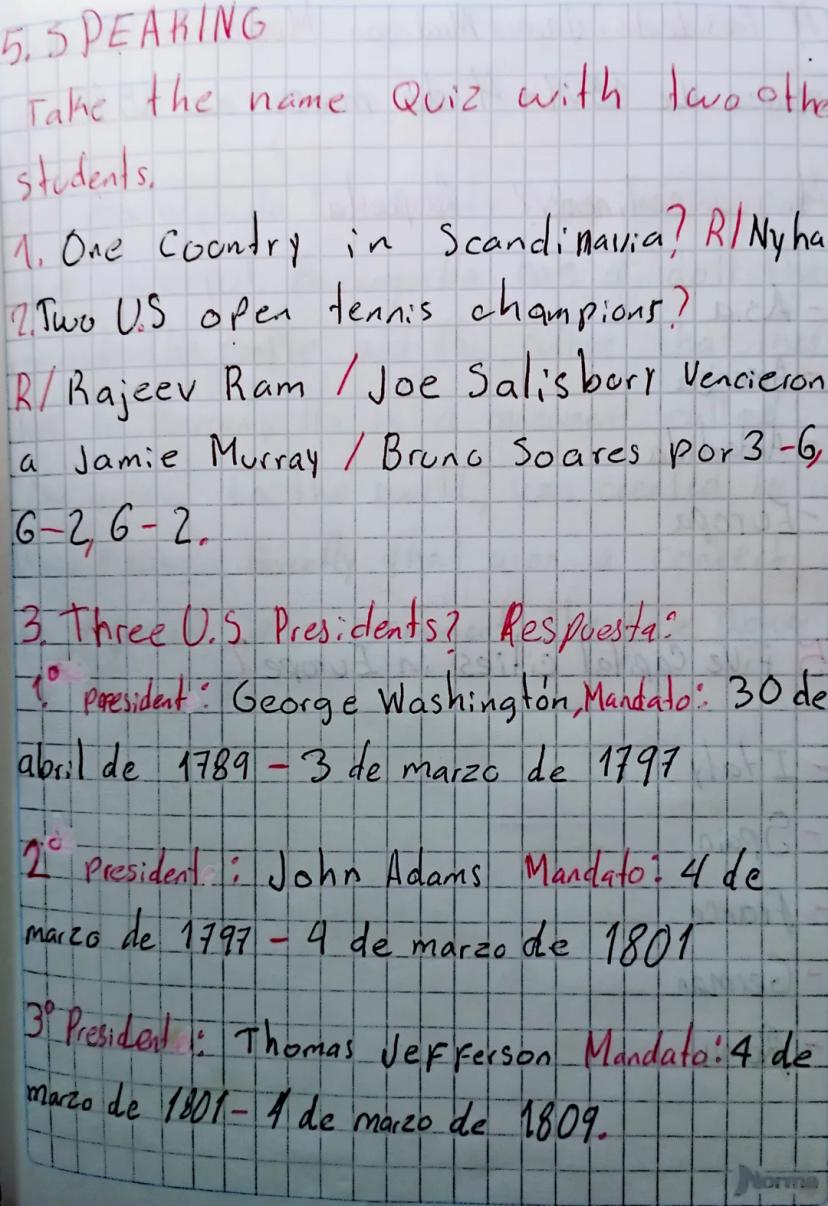 5. SPEAKING
Take the name Quiz with two othe
students.
1. One Coontry in Scandinavia? R/Nyha
2. Two U.S open tennis champions?
R/ Rajeev Ram / Joe Salisbory Vencieron
a Jamie Murray / Bruno Soares por 3-6,
6-2, 6-2.
3. Three U.S. Presidents? Respuesta:
1° President: George Washingtón, Mandato: 30 de
abril de 1789 - 3 de marzo de 1797
2° President: John Adams Mandato: 4 de
marzo de 1797 - 4 de marzo de 1801
3° President: Thomas Jefferson Mandato: 4 de
marzo de 1801 - 4 de marzo de 1809.
Norma